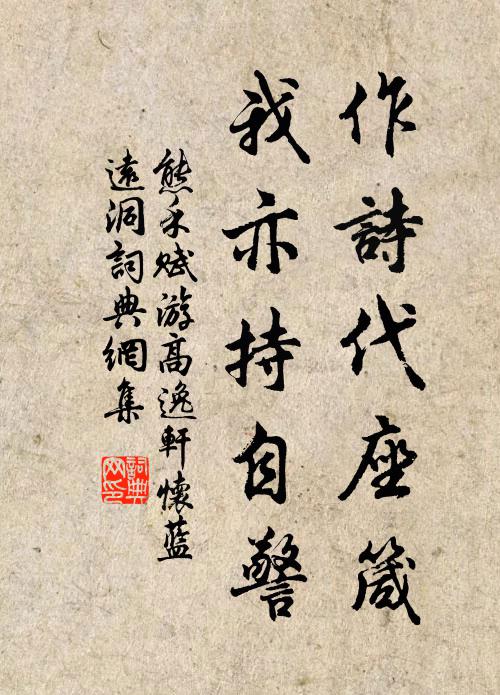 作詩代座箴
我亦持自警
熊禾賦游高逸軒懷藍
遠洞詞典網集
詞典
网印